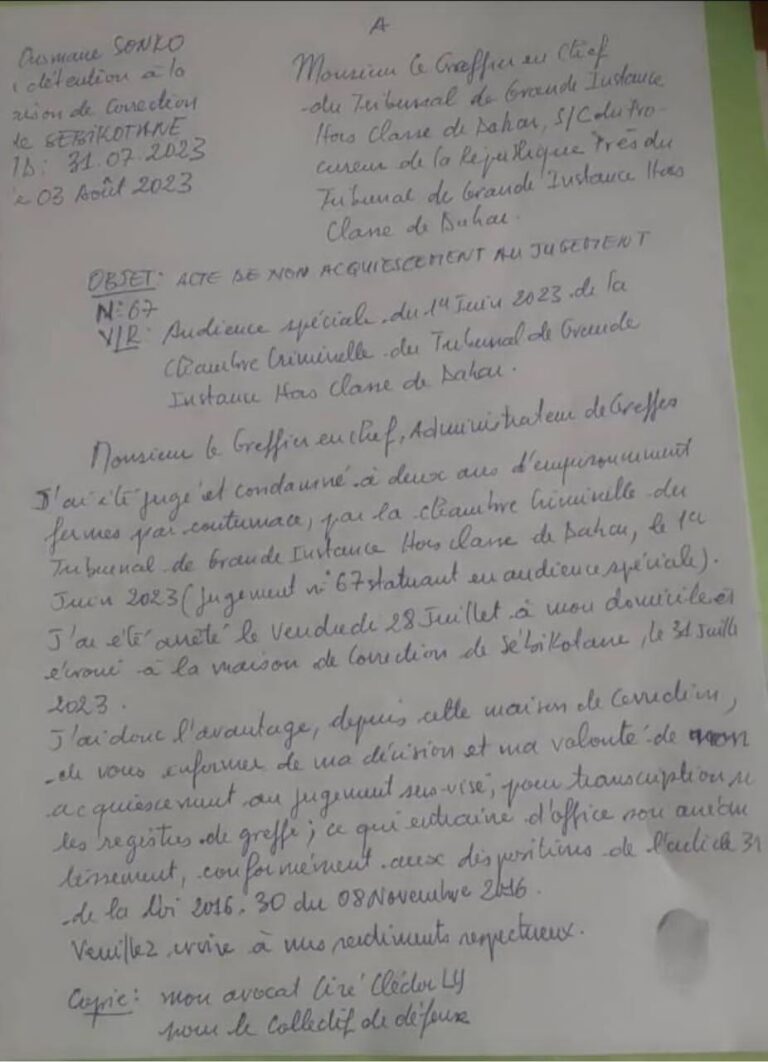 A
Ousmane SONKO
détention à la
rison de Correction
de SEBIKOTANE
ID: 31.07.2023
e 03 Août 2023
Monsieur le Greffier en Chef
du Tribunal de Grande Instance
Hors Classe de Dakar, S/C du Pro-
cureur de la République Près du
Tribunal de Grande Instance Hors
Classe de Dakar.
OBJET: ACTE DE NON ACQUIESCEMENT AU JUGEMENT
N°67
V/R: Audience spéciale du 1er Juin 2023 de la
Chambre Criminelle du Tribunal de Grande
Instance Hors Classe de Dakar.
Monsieur le Greffier en chef, Administrateur de Greffes
J'ai été jugé et condamné à deux ans d'emprisonnement
fermes par contumace, par la chambre Criminelle du
Tribunal de Grande Instance Hors classe de Dakar, le 1er
Juin 2023 (jugement n°67 statuant en audience spéciale).
J'ai été arrêté le Vendredi 28 Juillet à mon domicile et
écroué à la maison de Correction de Sébikotane, le 31 Juille
2023.
J'ai donc l'avantage, depuis cette maison de Correction,
de vous informer de ma décision et ma volonté de non
acquiescement au jugement sus-visé, pour transcription
les registres de greffe; ce qui entraine d'office son anéan
tissement, conformément aux dispositions de l'article 31
de la loi 2016.30 du 08 Novembre 2016.
Veuillez croire à mes sentiments respectueux.
Copie: mon avocat Ciré Clédor LY
pour le Collectif de défense